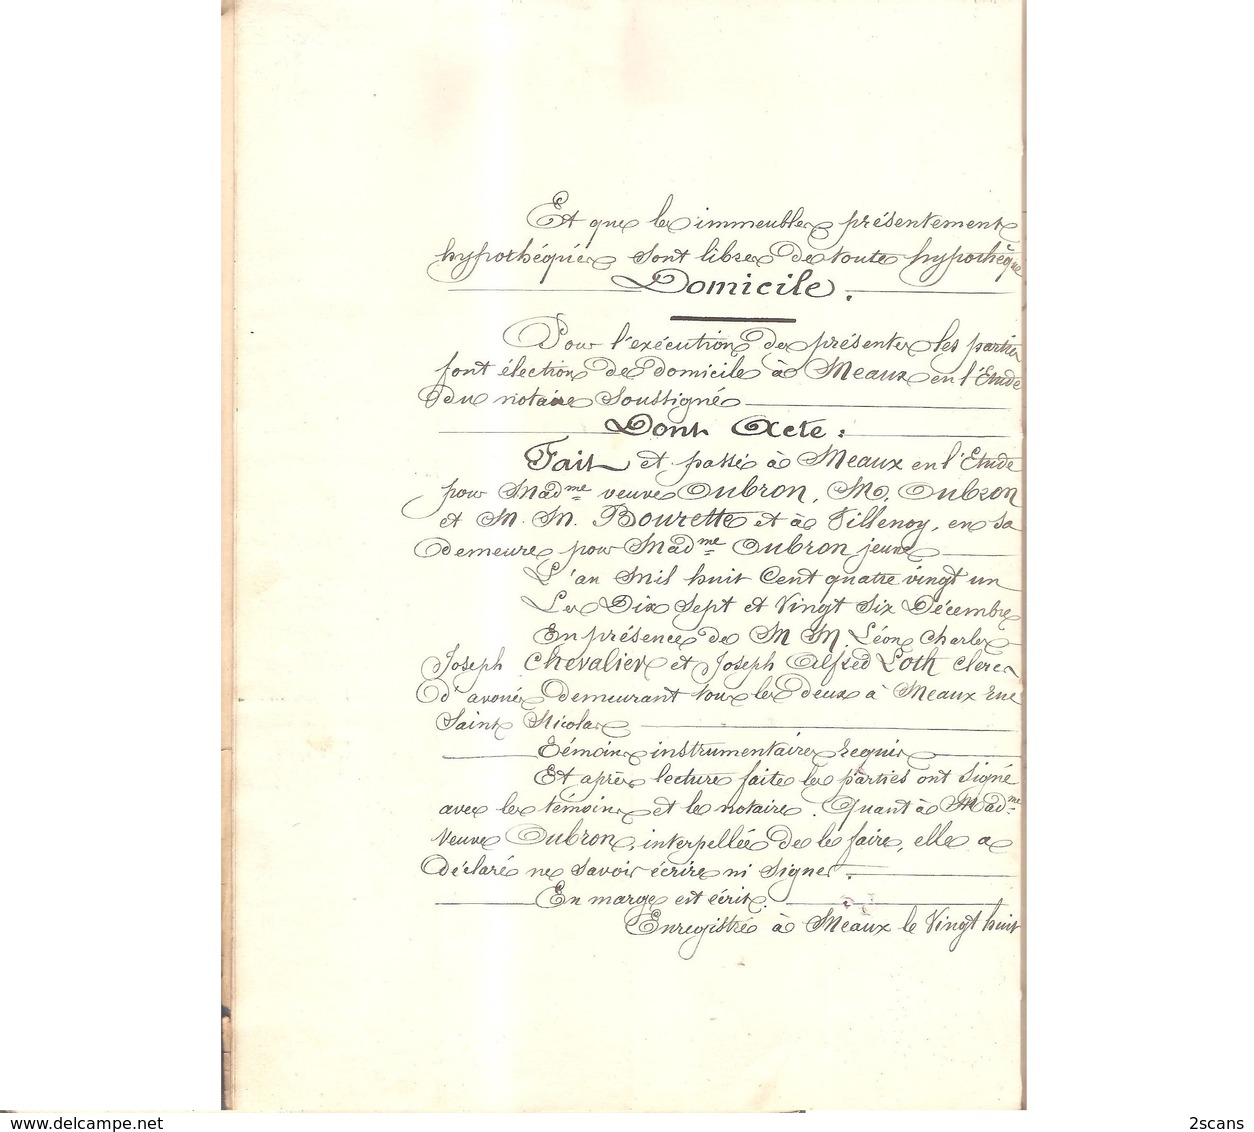 Et que les immeubles présentement
hypothéqués sont libres de toute hypothèque
Domicile.
Pour l'exécution des présentes les parties
font élection de domicile à Meaux en l'Etude
du notaire Soussigné
Dont Acte :
Fait et passé à Meaux en l'Etude
pour Madme veuve Oubron, M. Oubron
et M. M. Bourette et à Villenoy, en sa
demeure pour Madme Oubron jeune
L'an Mil huit Cent quatre vingt un
Les Dix Sept et Vingt Six Décembre
En présence de M M. Léon Charles
Joseph Chevalier et Joseph Alfred Loth Clercs
d'avoués demeurant tous les deux à Meaux rue
Saint Nicolas
Témoins instrumentaires requis
Et après lecture faite les parties ont Signé
avec les témoins et le notaire. Quant à Madme
Veuve Oubron, interpellée de le faire, elle a
déclaré ne Savoir écrire ni Signer.
En marge est écrit.
Enregistré à Meaux le Vingt huit
www.delcampe.net
2scans